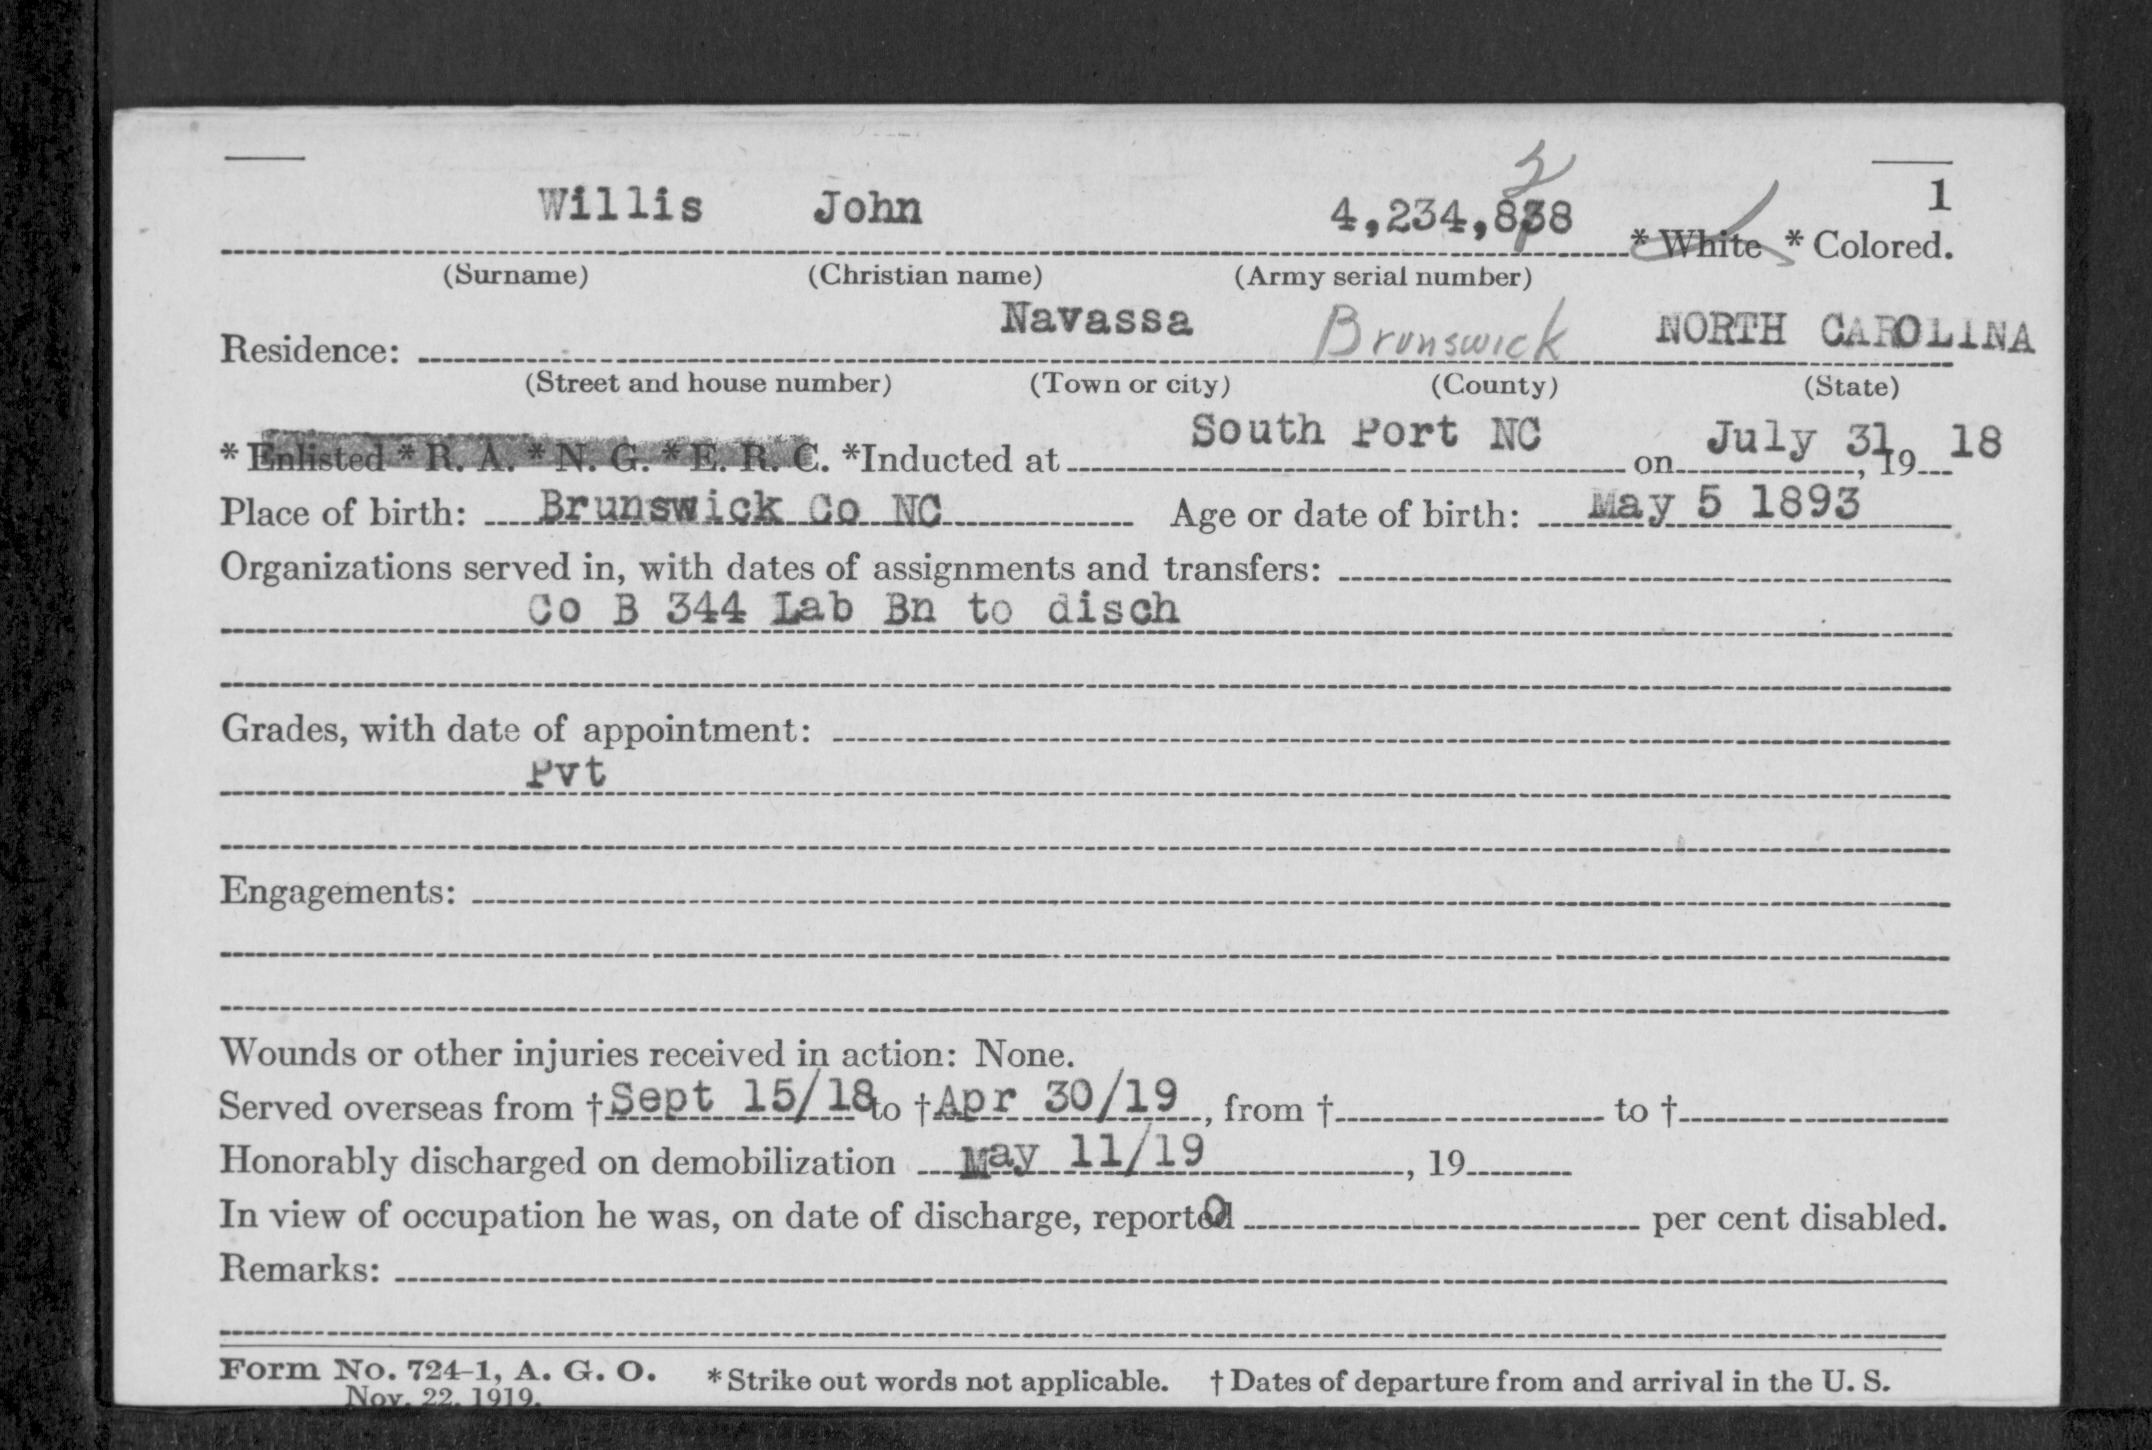 1
Willis John 4,234,838 2 * White * Colored.
(Surname) (Christian name) (Army serial number)
Residence: Navassa Brunswick NORTH CAROLINA
(Street and house number) (Town or city) (County) (State)
* Enlisted * R. A. * N. G. * E. R. C. *Inducted at South Port NC on July 31, 19 18
Place of birth: Brunswick Co NC Age or date of birth: May 5 1893
Organizations served in, with dates of assignments and transfers:
Co B 344 Lab Bn to disch
Grades, with date of appointment:
Pvt
Engagements:
Wounds or other injuries received in action: None.
Served overseas from † Sept 15/18 to † Apr 30/19, from † to †
Honorably discharged on demobilization May 11/19, 19
In view of occupation he was, on date of discharge, reported 0 per cent disabled.
Remarks:
Form No. 724-1, A. G. O. * Strike out words not applicable. † Dates of departure from and arrival in the U. S.
Nov. 22, 1919.